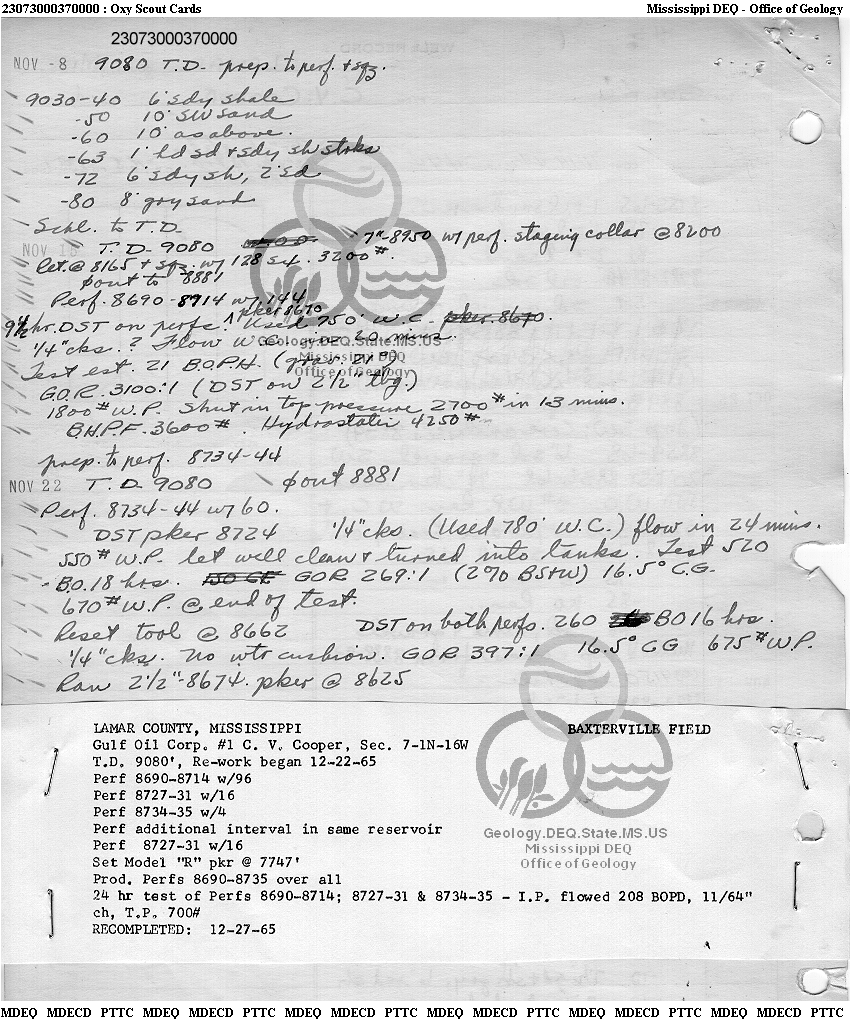 23073000370000 : Oxy Scout Cards
Mississippi DEQ - Office of Geology
23073000370000
NOV -8 9080 T.D. prep. to perf. + sqz.
9030-40 6' sdy shale
-50 10' SW sand
-60 10' as above.
-63 1' hd sd + sdy sh strks
-72 6' sdy sh, 2' sd
-80 8' gry sand
Schl. to T.D.
NOV 15 T.D. 9080 7"-8950 w/ perf. staging collar @ 8200
let. @ 8165 + sqz. w/ 128 sx. 3200#.
φ out to 8881
Perf. 8690-8914 w/ 144
pker 8670
9 1/2 hr. DST on perfs. Used 750' W.C. pker. 8670.
1/4" cks. ? Flow W.C. in 20 mins.
Test est. 21 B.O.P.H. (grav. 21°)
G.O.R. 3100:1 (DST on 2 1/2" tbg.)
1800# W.P. Shut in top pressure 2700# in 13 mins.
B.H.P.F. 3600#. Hydrostatic 4250#
prep. to perf. 8734-44
NOV 22 T.D. 9080 φ out 8881
Perf. 8734-44 w/ 60.
DST pker 8724 1/4" cks. (Used 780' W.C.) flow in 24 mins.
550# W.P. let well clean + turned into tanks. Test 520
B.O. 18 hrs. GOR 269:1 (2% BS+W) 16.5° C.G.
670# W.P. @ end of test.
Reset tool @ 8662 DST on both perfs. 260 BO 16 hrs.
1/4" cks. No wtr cushion. GOR 397:1 16.5° CG 675# W.P.
Ran 2 1/2"-8674. pker @ 8625
Geology.DEQ.State.MS.US
Mississippi DEQ
Office of Geology
LAMAR COUNTY, MISSISSIPPI BAXTERVILLE FIELD
Gulf Oil Corp. #1 C. V. Cooper, Sec. 7-1N-16W
T.D. 9080', Re-work began 12-22-65
Perf 8690-8714 w/96
Perf 8727-31 w/16
Perf 8734-35 w/4
Perf additional interval in same reservoir
Perf 8727-31 w/16
Set Model "R" pkr @ 7747'
Prod. Perfs 8690-8735 over all
24 hr test of Perfs 8690-8714; 8727-31 & 8734-35 - I.P. flowed 208 BOPD, 11/64"
ch, T.P. 700#
RECOMPLETED: 12-27-65
Geology.DEQ.State.MS.US
Mississippi DEQ
Office of Geology
MDEQ MDECD PTTC MDEQ MDECD PTTC MDEQ MDECD PTTC MDEQ MDECD PTTC MDEQ MDECD PTTC MDEQ MDECD PTTC